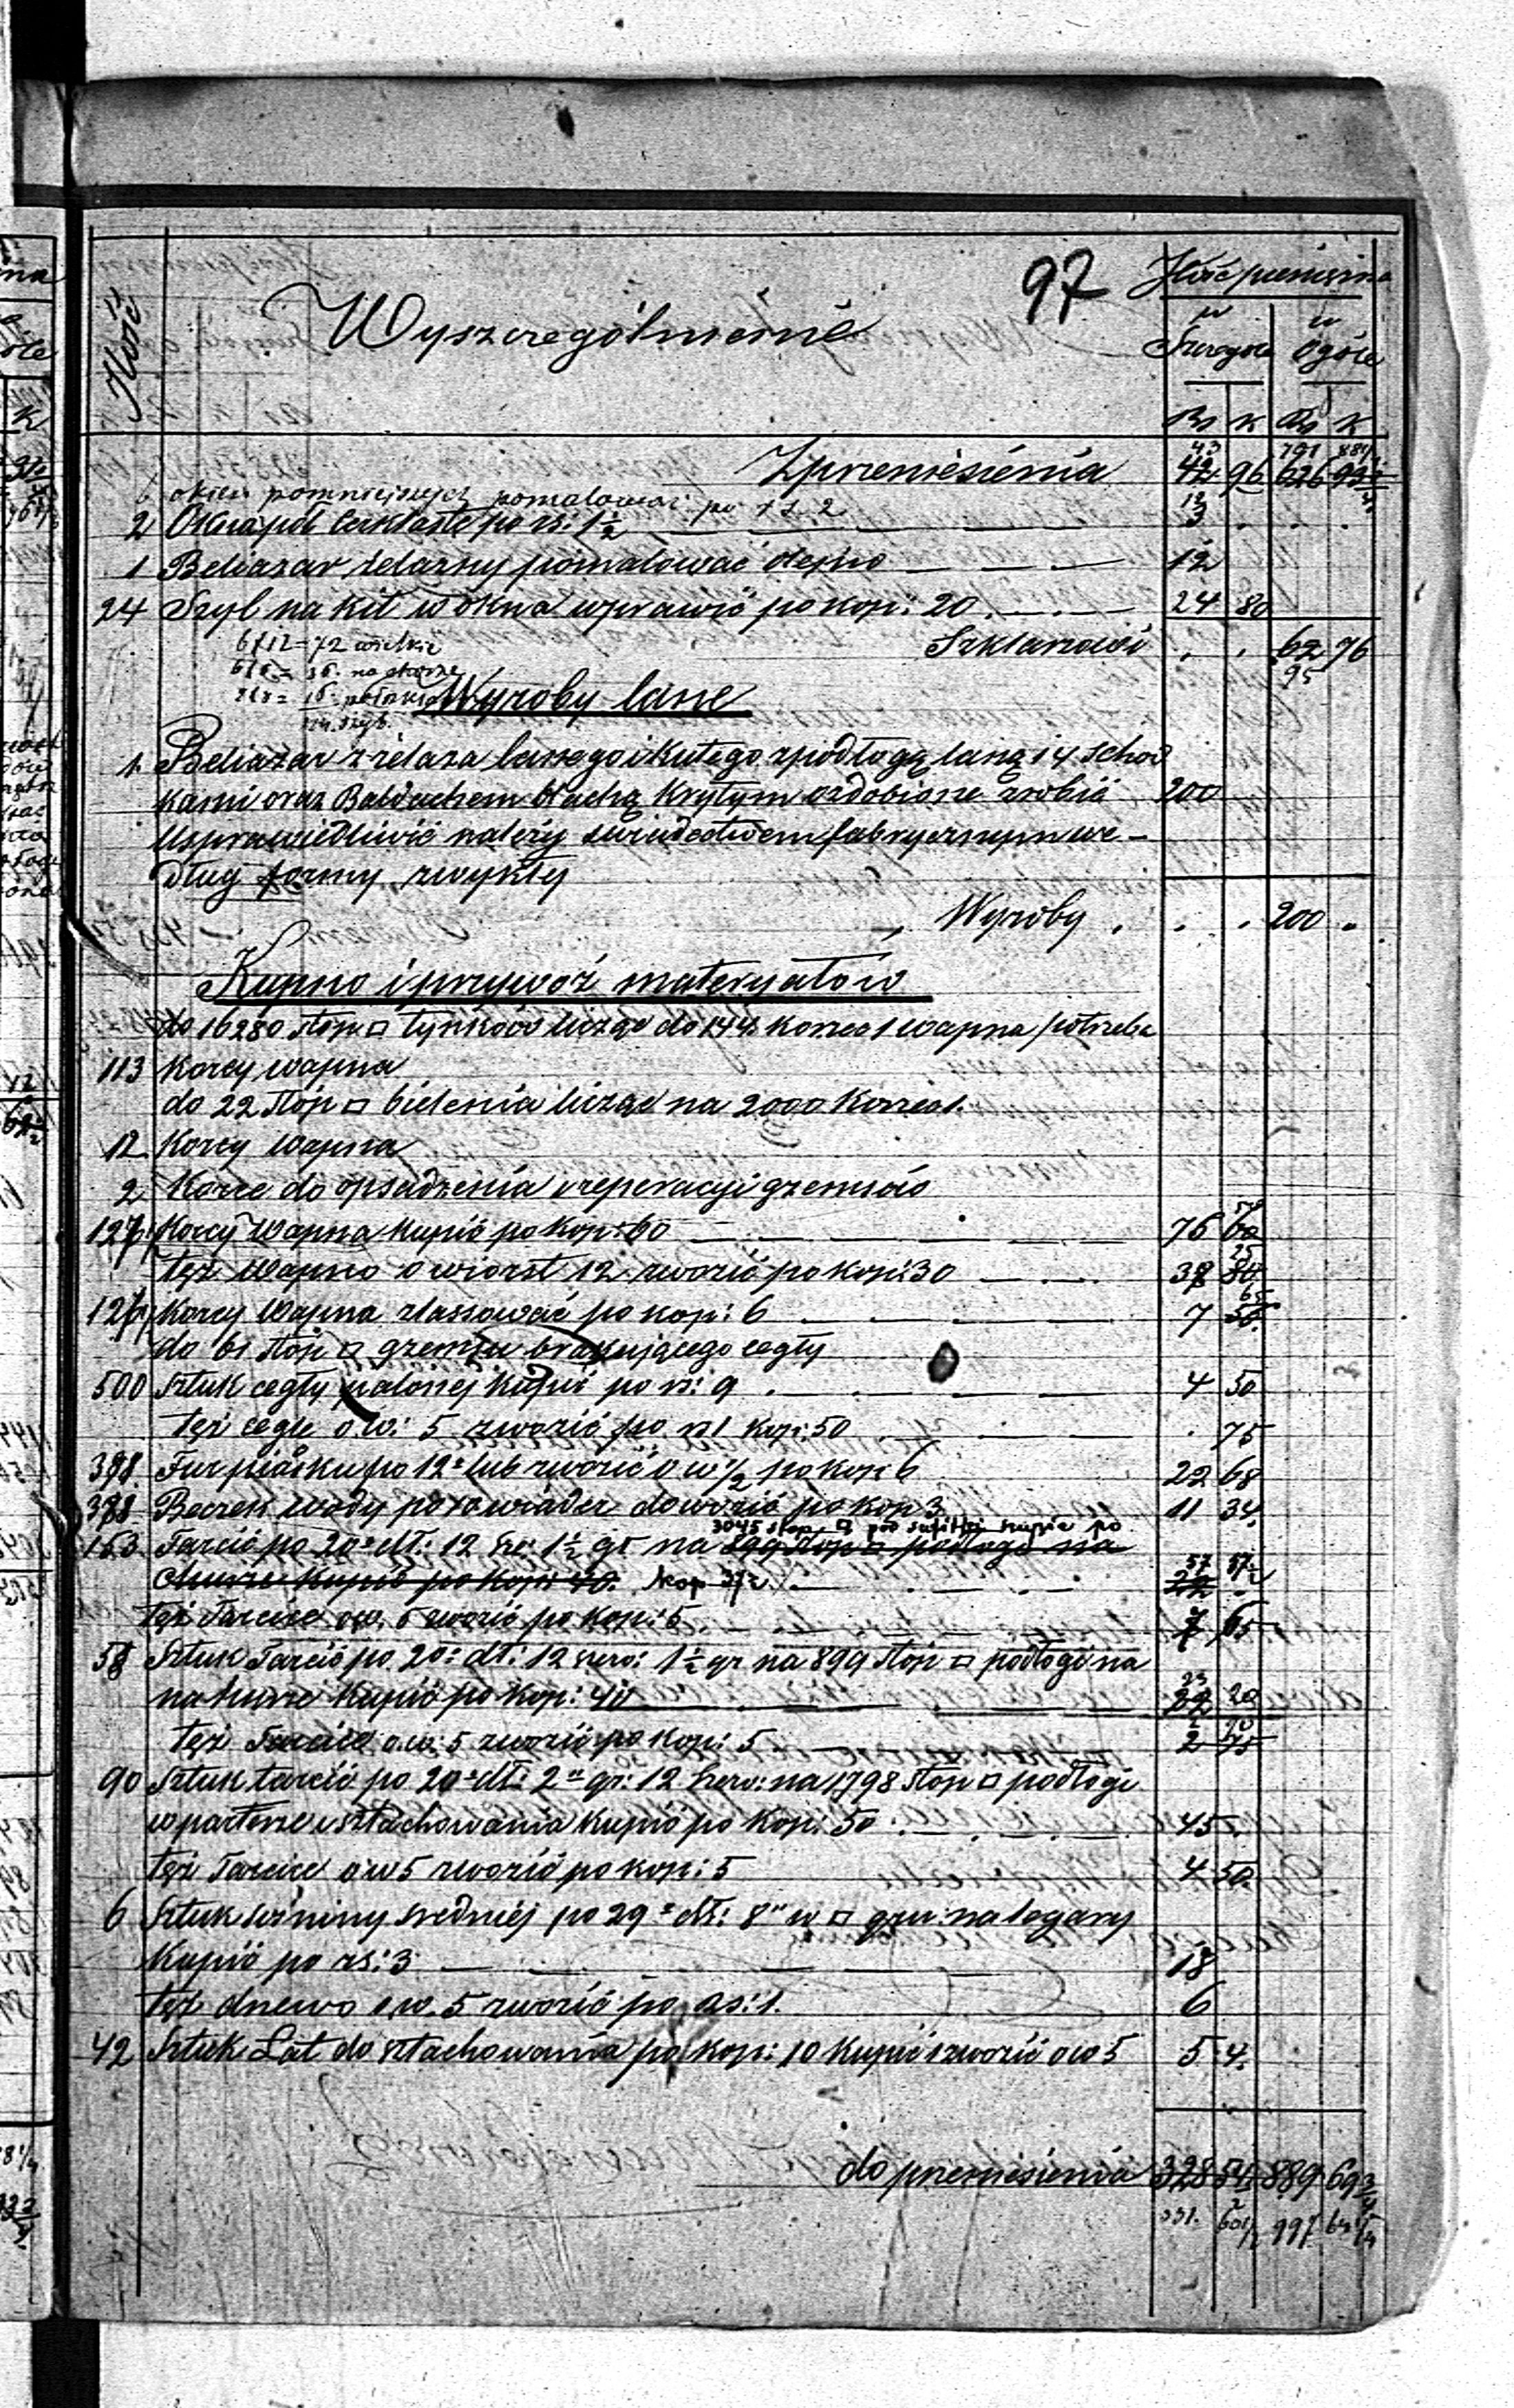 97
Ilość
Wyszczególnienie
Ilość pieniężna
w Szczególe
w Ogóle
Rs K Rs K
Zprzeniesienia 42 96 626 93
43 791
6 okien pomniejszych pomalować po rs 2 12
2 Okna pół cerklaste po rs: 1½ 3
1 Beliazar żelazny pomalować olejno 12
24 Szyb na kit w okna wprawić po kop: 20 24 80
Szklarzowi 62 76
95
6/12 = 72 wielkie
6/6 = 36
Wyroby lane
1 Beliazar z żelaza lanego i kutego z podłogą laną i 4 schod
kami oraz Baldachem blachą krytym ozdobione zrobić 200
Usprawiedliwić należy świadectwem fabrycznym we-
dług formy zwykłej
Wyroby 200
Kupno i przywóz materyałów
do 16280 stóp □ tynków licząc do 144 korzec 1 wapna potrzeba
113 Korcy wapna
do 22 stóp □ bielenia licząc na 2000 Korzec 1.
12 Korcy wapna
2 Korce do opsadzenia i reperacyi gzemsów
127 Korcy Wapna kupić po kop: 60 76 60
też wapno o wiorst 12 zwozić po kop: 30 38
Korcy Wapna zlassować po kop: 6 7 56
do 61 stóp □ gzemsu brakującego cegły
500 Sztuk cegły palonej kupić po rs: 9 4 50
też cegłę o w: 5 zwozić po rs 1 kop: 50 75
378 Fur piasku po 12 lub zwozić o w ½ po kop 6 22 68
378 Beczek wody po 10 wiader dowozić po kop 3 11 34
153 Tarcic po 20 dł: 12 sze: 1½ gr na 899 stóp □ podłogi na
3045 stop □ pod sufitki kupić po
kop 37½ 57 37½
też Tarcice o w. 5 zwozić po kop: 5 7 65
58 Sztuk Tarcic po 20 dł: 12 szero: 1½ gr na 899 stóp □ podłogi na
na kupić po kop: 40 23 20
też Tarcice o w: 5 zwozić po kop: 5 2
90 Sztuk tarcic po 20 dł: 2" gr: 12 szero: na 1798 stóp □ podłogi
w parterze i sztachowania kupić po kop: 50 45
też Tarcice o w 5 zwozić po kop: 5 4 50
6 Sztuk sośniny średniej po 29 dł: 8" w □ gru: na legary
kupić po rs: 3 18
też drzewo o w. 5 zwozić po rs: 1. 6
42 Sztuk Łat do sztachowania po kop: 10 kupić i zwozić o w 5 5 4
do przeniesienia 328 54 889 69¾
331. 60½ 997 64¼